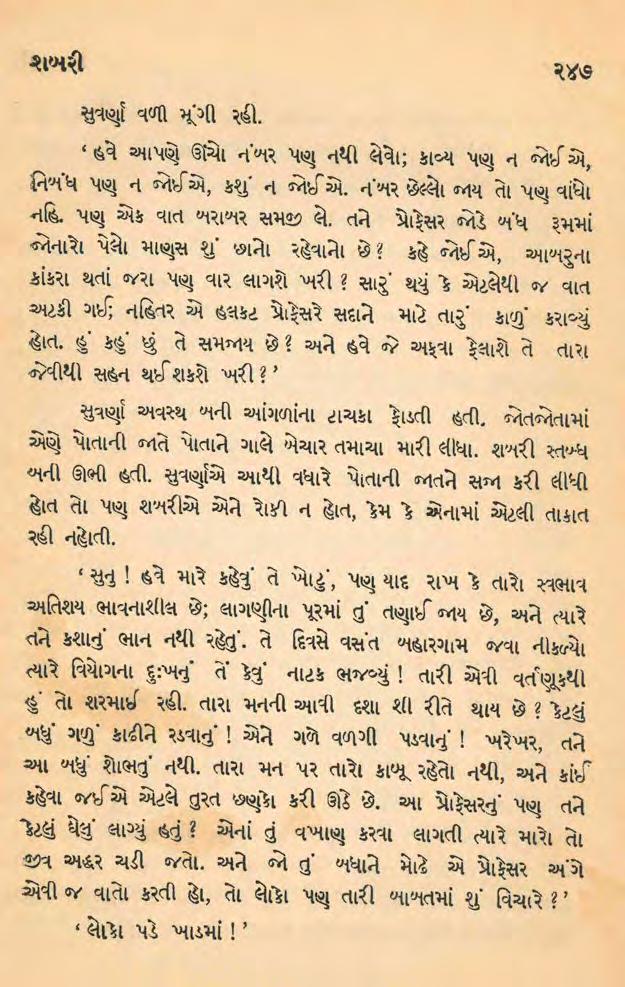 શબરી
૨૪૭
સુવર્ણા વળી મૂંગી રહી.
‘ હવે આપણે ઊંચો નંબર પણ નથી લેવો; કાવ્ય પણ ન જોઈએ,
નિબંધ પણ ન જોઈએ, કશું ન જોઈએ. નંબર છેલ્લો જાય તો પણ વાંધો
નહિ. પણ એક વાત બરાબર સમજી લે. તને પ્રોફેસર જોડે બંધ રૂમમાં
જોનારો પેલો માણસ શું છાનો રહેવાનો છે? કહે જોઈએ, આબરુના
કાંકરા થતાં જરા પણ વાર લાગશે ખરી? સારું થયું કે એટલેથી જ વાત
અટકી ગઈ; નહિતર એ હલકટ પ્રોફેસરે સદાને માટે તારું કાળું કરાવ્યું
હોત. હું કહું છું તે સમજાય છે? અને હવે જે અફવા ફેલાશે તે તારા
જેવીથી સહન થઈ શકશે ખરી?’
સુવર્ણા અવસ્થ બની આંગળાંના ટાચકા ફોડતી હતી. જોતજોતામાં
એણે પોતાની જાતે પોતાને ગાલે બેચાર તમાચા મારી લીધા. શબરી સ્તબ્ધ
બની ઊભી હતી. સુવર્ણાએ આથી વધારે પોતાની જાતને સજા કરી લીધી
હોત તો પણ શબરીએ એને રોકી ન હોત, કેમ કે એનામાં એટલી તાકાત
રહી નહોતી.
‘ સુનુ! હવે મારે કહેવું તે ખોટું, પણ યાદ રાખ કે તારો સ્વભાવ
અતિશય ભાવનાશીલ છે; લાગણીના પૂરમાં તું તણાઈ જાય છે, અને ત્યારે
તને કશાનું ભાન નથી રહેતું. તે દિવસે વસંત બહારગામ જવા નીકળ્યો
ત્યારે વિયોગના દુઃખનું તેં કેવું નાટક ભજવ્યું! તારી એવી વર્તણૂકથી
હું તો શરમાઈ રહી. તારા મનની આવી દશા શી રીતે થાય છે? કેટલું
બધું ગળું કાઢીને રડવાનું! એને ગળે વળગી પડવાનું! ખરેખર, તને
આ બધું શોભતું નથી. તારા મન પર તારો કાબૂ રહેતો નથી, અને કાંઈ
કહેવા જઈએ એટલે તુરત છણકો કરી ઊઠે છે. આ પ્રોફેસરનું પણ તને
કેટલું ઘેલું લાગ્યું હતું? એનાં તું વખાણ કરવા લાગતી ત્યારે મારો તો
જીવ અદ્ધર ચડી જતો. અને જો તું બધાને મોઢે એ પ્રોફેસર અંગે
એવી જ વાતો કરતી હો, તો લોકો પણ તારી બાબતમાં શું વિચારે?’
‘ લોકો પડે ખાડમાં!’